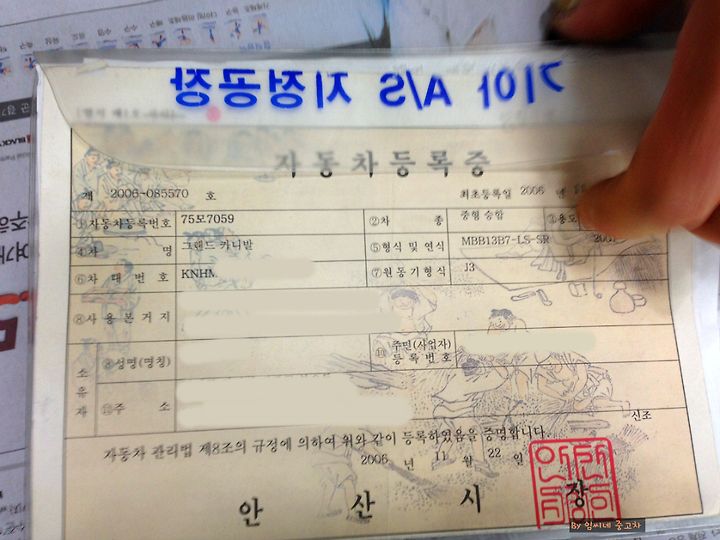 기아 A/S 지정공장
자동차등록증
제 2006-085570 호
최초등록일 2006 년
①자동차등록번호 75모7059 ②차 종 중형 승합 ③용도
④차 명 그랜드 카니발 ⑤형식 및 연식 MBB13B7-LS-SR 2007
⑥차 대 번 호 KNHM ⑦원동기형식 J3
⑧사 용 본 거 지
소유자
⑨성명(명칭) ⑩주민(사업자)등록번호
⑪주 소
신조
자동차 관리법 제8조의 규정에 의하여 위와 같이 등록하였음을 증명합니다.
2006 년 11 월 22 일
안 산 시 장
By 임씨네 중고차